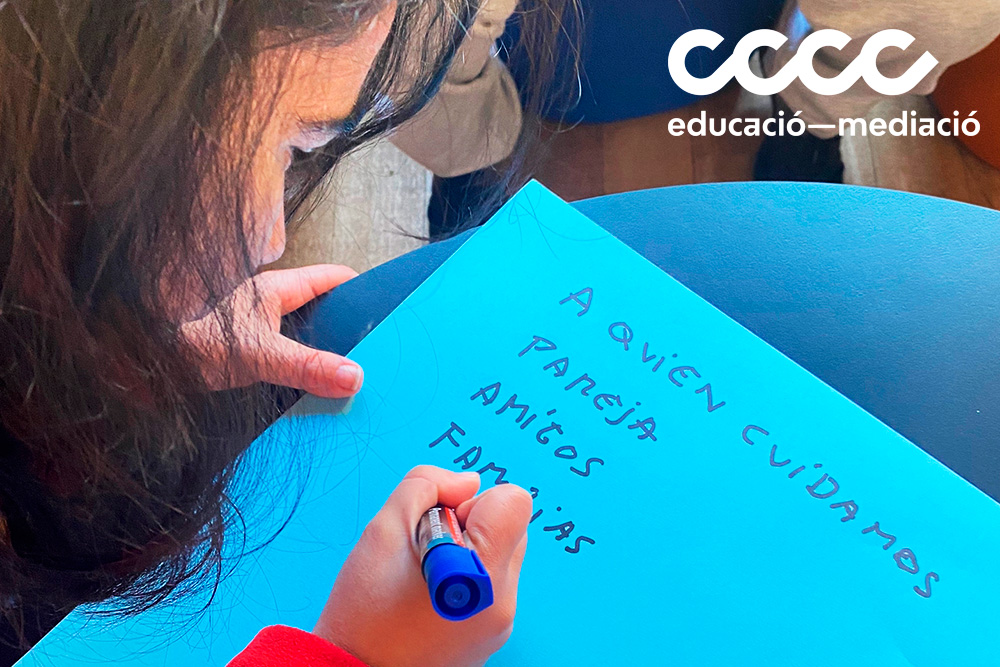 cccc
educació—mediació
A QUIEN CUIDAMOS
PAREJA
AMIGOS